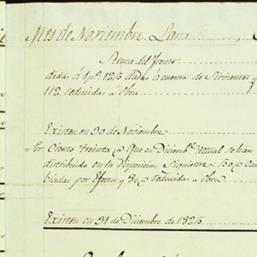 Mes de Noviembre Lana
Suma del frente
dadas á 1 p.º 125 dadas a cuenta de Sirvientes y
112 reducidas á Obra
Existen en 30 de Noviembre
Por Ciento treinta @ que en Diciemb.e actual se han
distribuido en la Disposicion Siguiente 50 @ Cam
biadas por Efectos y 80 @ reducidas á Obra
Existen en 31 de Diciembre de 1826